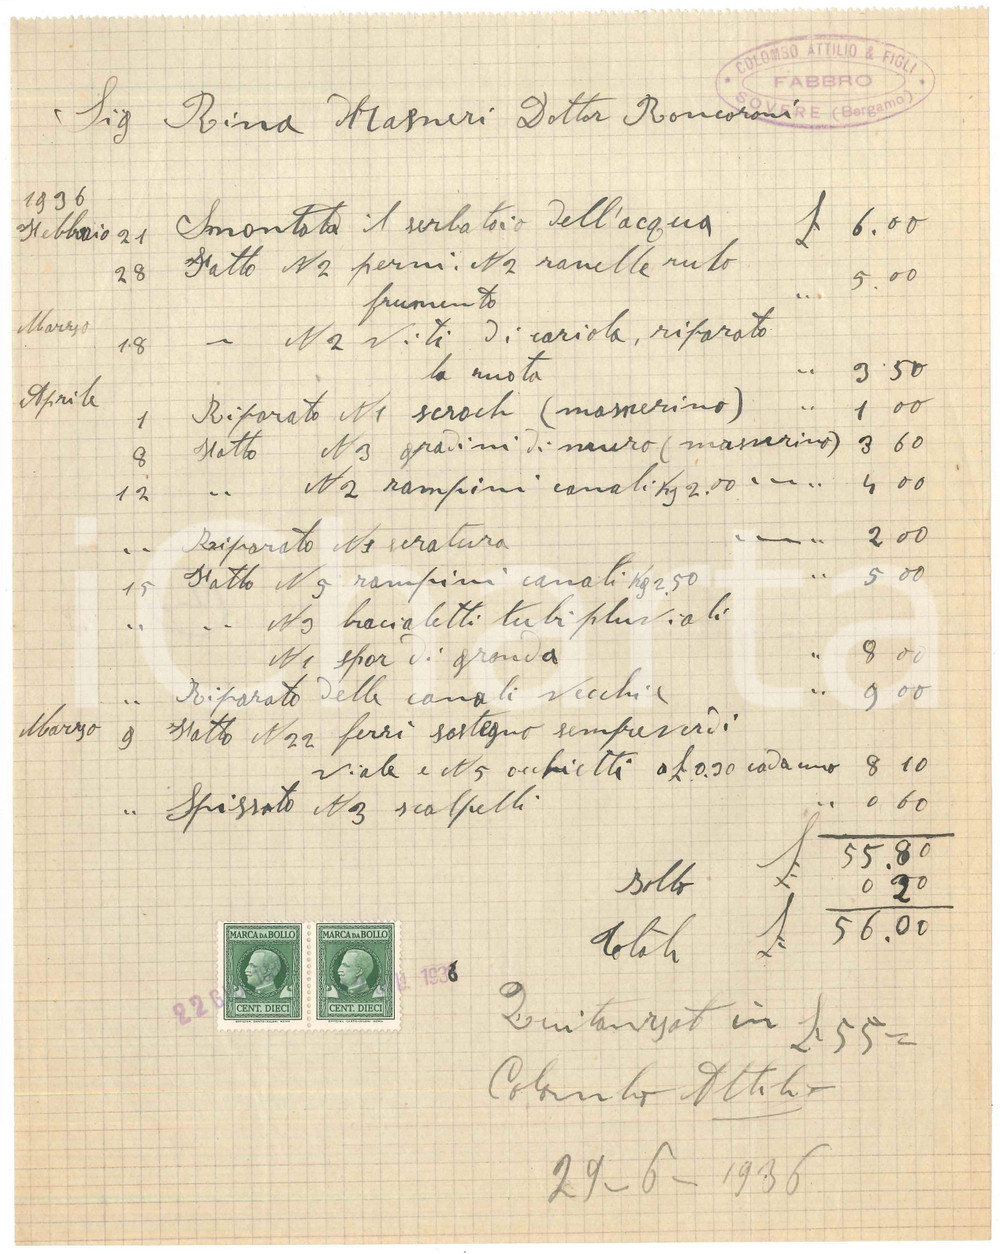 COLOMBO ATTILIO & FIGLI
FABBRO
SOVERE (Bergamo)
Sig Rina Masneri Dottor Roncoroni
1936
Febbraio 21 Smontata il serbatoio dell'acqua £ 6.00
28 Fatto N2 perni. N2 ranelle rulo
frumento " 5.00
Marzo 18 " N2 viti di cariola, riparato
la ruota " 3.50
Aprile 1 Riparato N1 (masnerino) " 1 00
8 Fatto N3 gradini di muro (masnerino) 3 60
12 " N2 rampini canali Kg 2.00 " " 4 00
" Riparato N1 seratura " " 2 00
15 Fatto N5 rampini canali Kg 2.50 " 5 00
" " N3 bracialetti tubi pluviali
N1 spor di gronda " 8 00
" Riparato delle canali vecchie " 9 00
Marzo 9 Fatto N22 ferri sostegno sempreverdi
viale e N5 occhietti a £ 0.30 cadauno 8 10
" Spissato N3 scalpelli " 0 60
£ 55.80
Bollo £ 0 20
Totale £ 56.00
MARCA DA BOLLO MARCA DA BOLLO
CENT. DIECI CENT. DIECI
226 1936
Quitanzat in £ 55=
Colombo Attilio
29-6-1936
iCharta